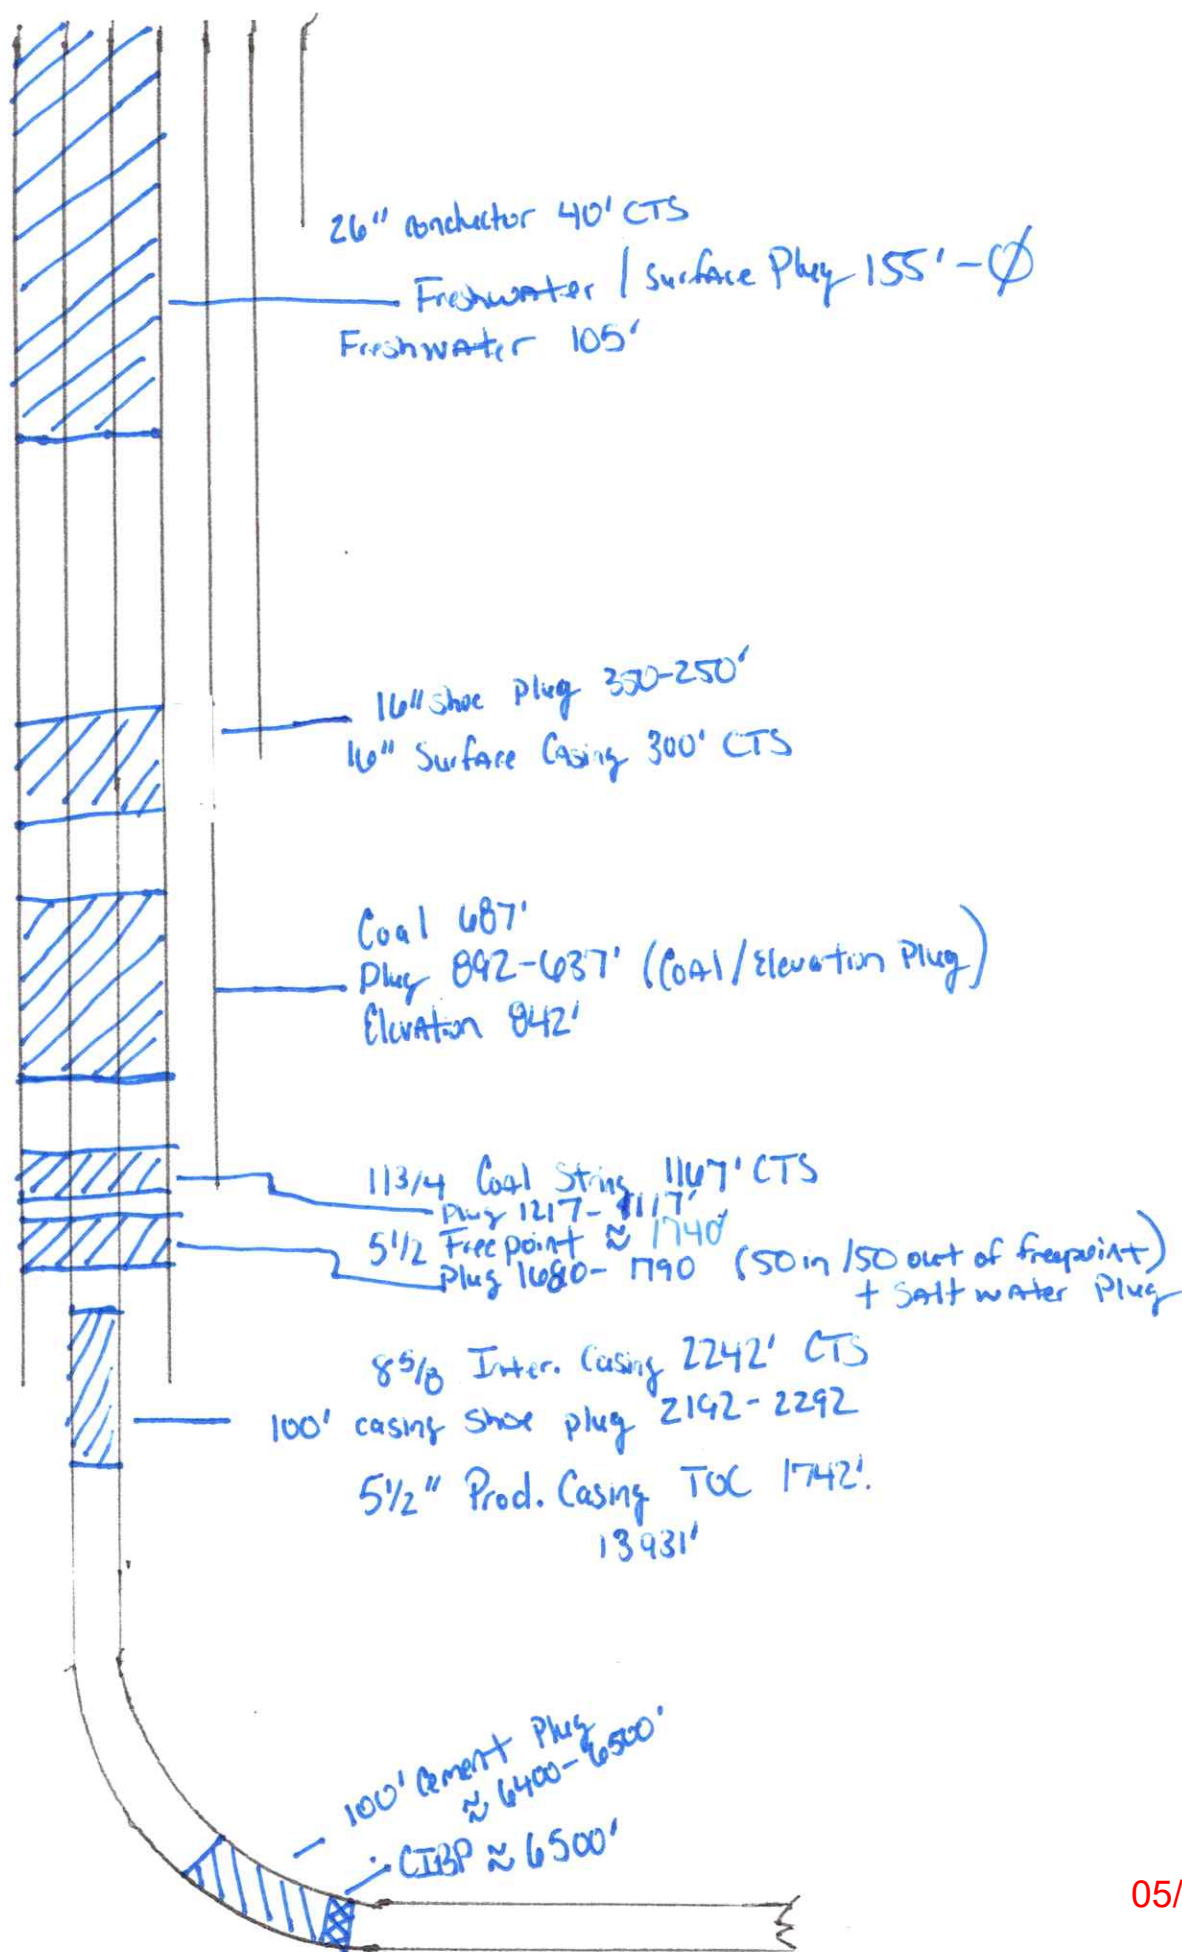 26" conductor 40' CTS
Freshwater / Surface Plug 155' - Ø
Freshwater 105'
16" shoe plug 350-250'
16" Surface Casing 300' CTS
Coal 687'
Plug 892-637' (Coal/Elevation Plug)
Elevation 842'
11 3/4 Coal String 1167' CTS
Plug 1217-1117'
5 1/2 Freepoint ≈ 1740'
Plug 1690-1790 (50 in / 50 out of freepoint)
+ Saltwater Plug
8 5/8 Inter. Casing 2242' CTS
100' casing shoe plug 2192-2292
5 1/2" Prod. Casing TOC 1742'.
13931'
100' Cement Plug
≈ 6400-6500'
CIBP ≈ 6500'
05/